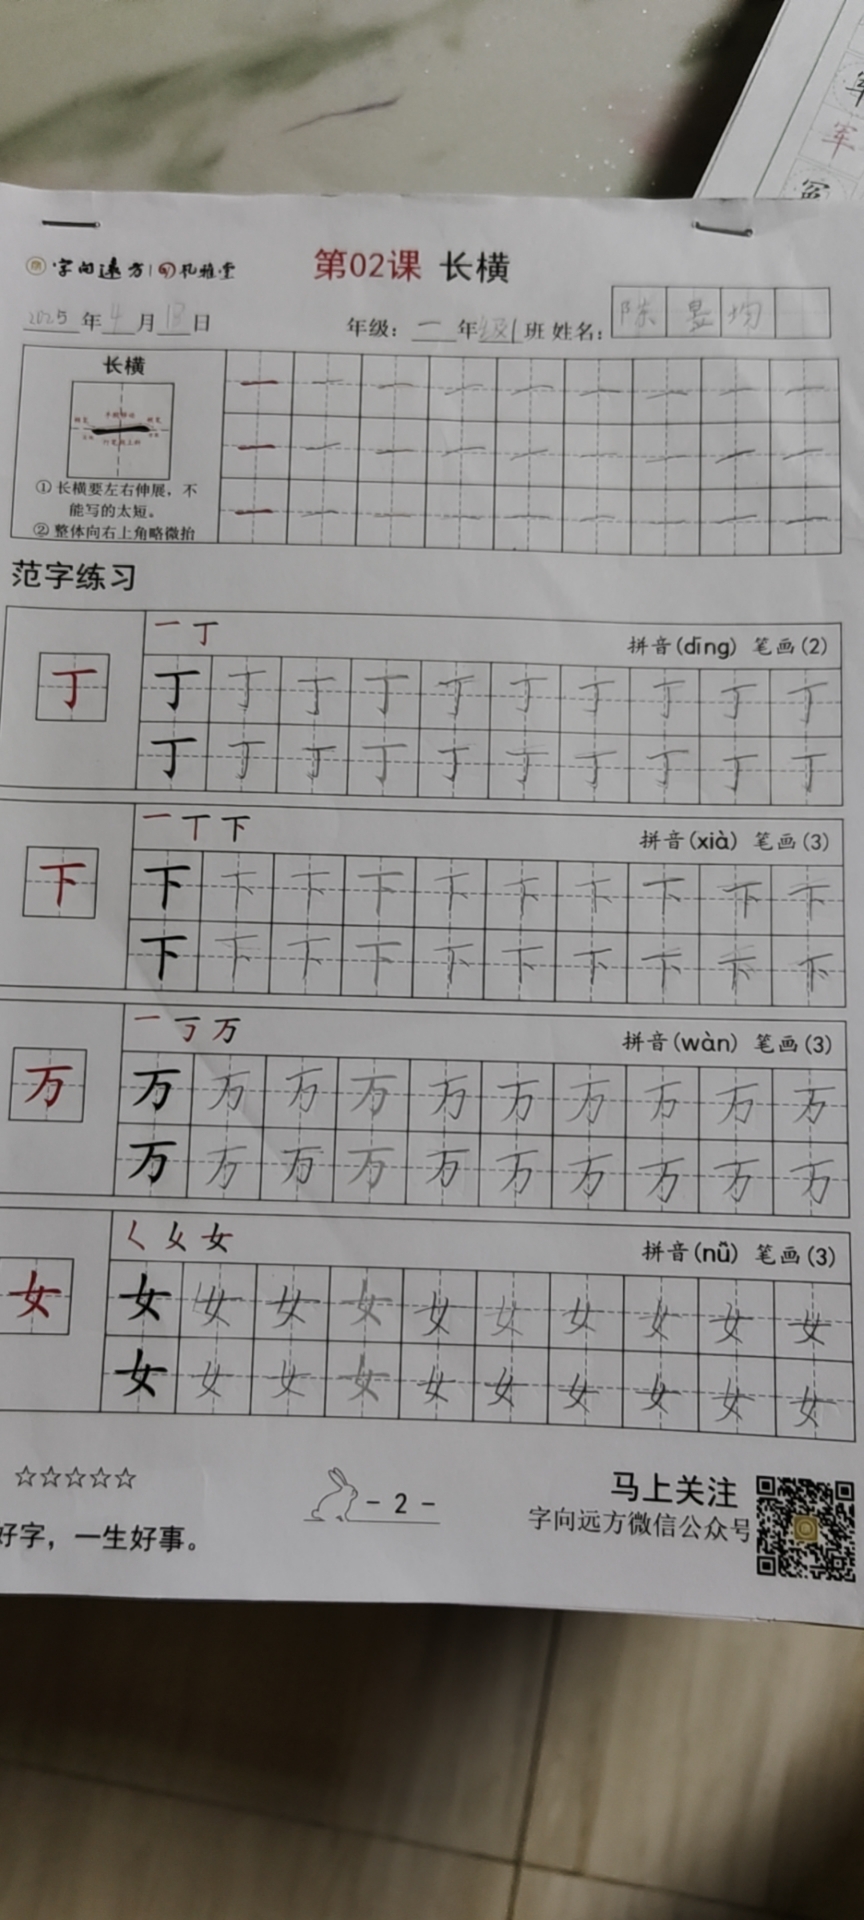 字向远方 | 孔雅堂
第02课 长横
2025年4月13日 年级：一年级1班 姓名：陈昱均
长横
① 长横要左右伸展，不
能写的太短。
② 整体向右上角略微抬
一 一 一 一 一 一 一 一 一
一 一 一 一 一 一 一 一 一
一 一 一 一 一 一 一 一 一
范字练习
一 丁 拼音(dīng) 笔画(2)
丁
丁 丁 丁 丁 丁 丁 丁 丁 丁 丁
丁 丁 丁 丁 丁 丁 丁 丁 丁 丁
一 丅 下 拼音(xià) 笔画(3)
下
下 下 下 下 下 下 下 下 下 下
下 下 下 下 下 下 下 下 下 下
一 丂 万 拼音(wàn) 笔画(3)
万
万 万 万 万 万 万 万 万 万 万
万 万 万 万 万 万 万 万 万 万
女 拼音(nǚ) 笔画(3)
女
女 女 女 女 女 女 女 女 女 女
女 女 女 女 女 女 女 女 女 女
☆☆☆☆☆
好字，一生好事。
- 2 -
马上关注
字向远方微信公众号
军
军